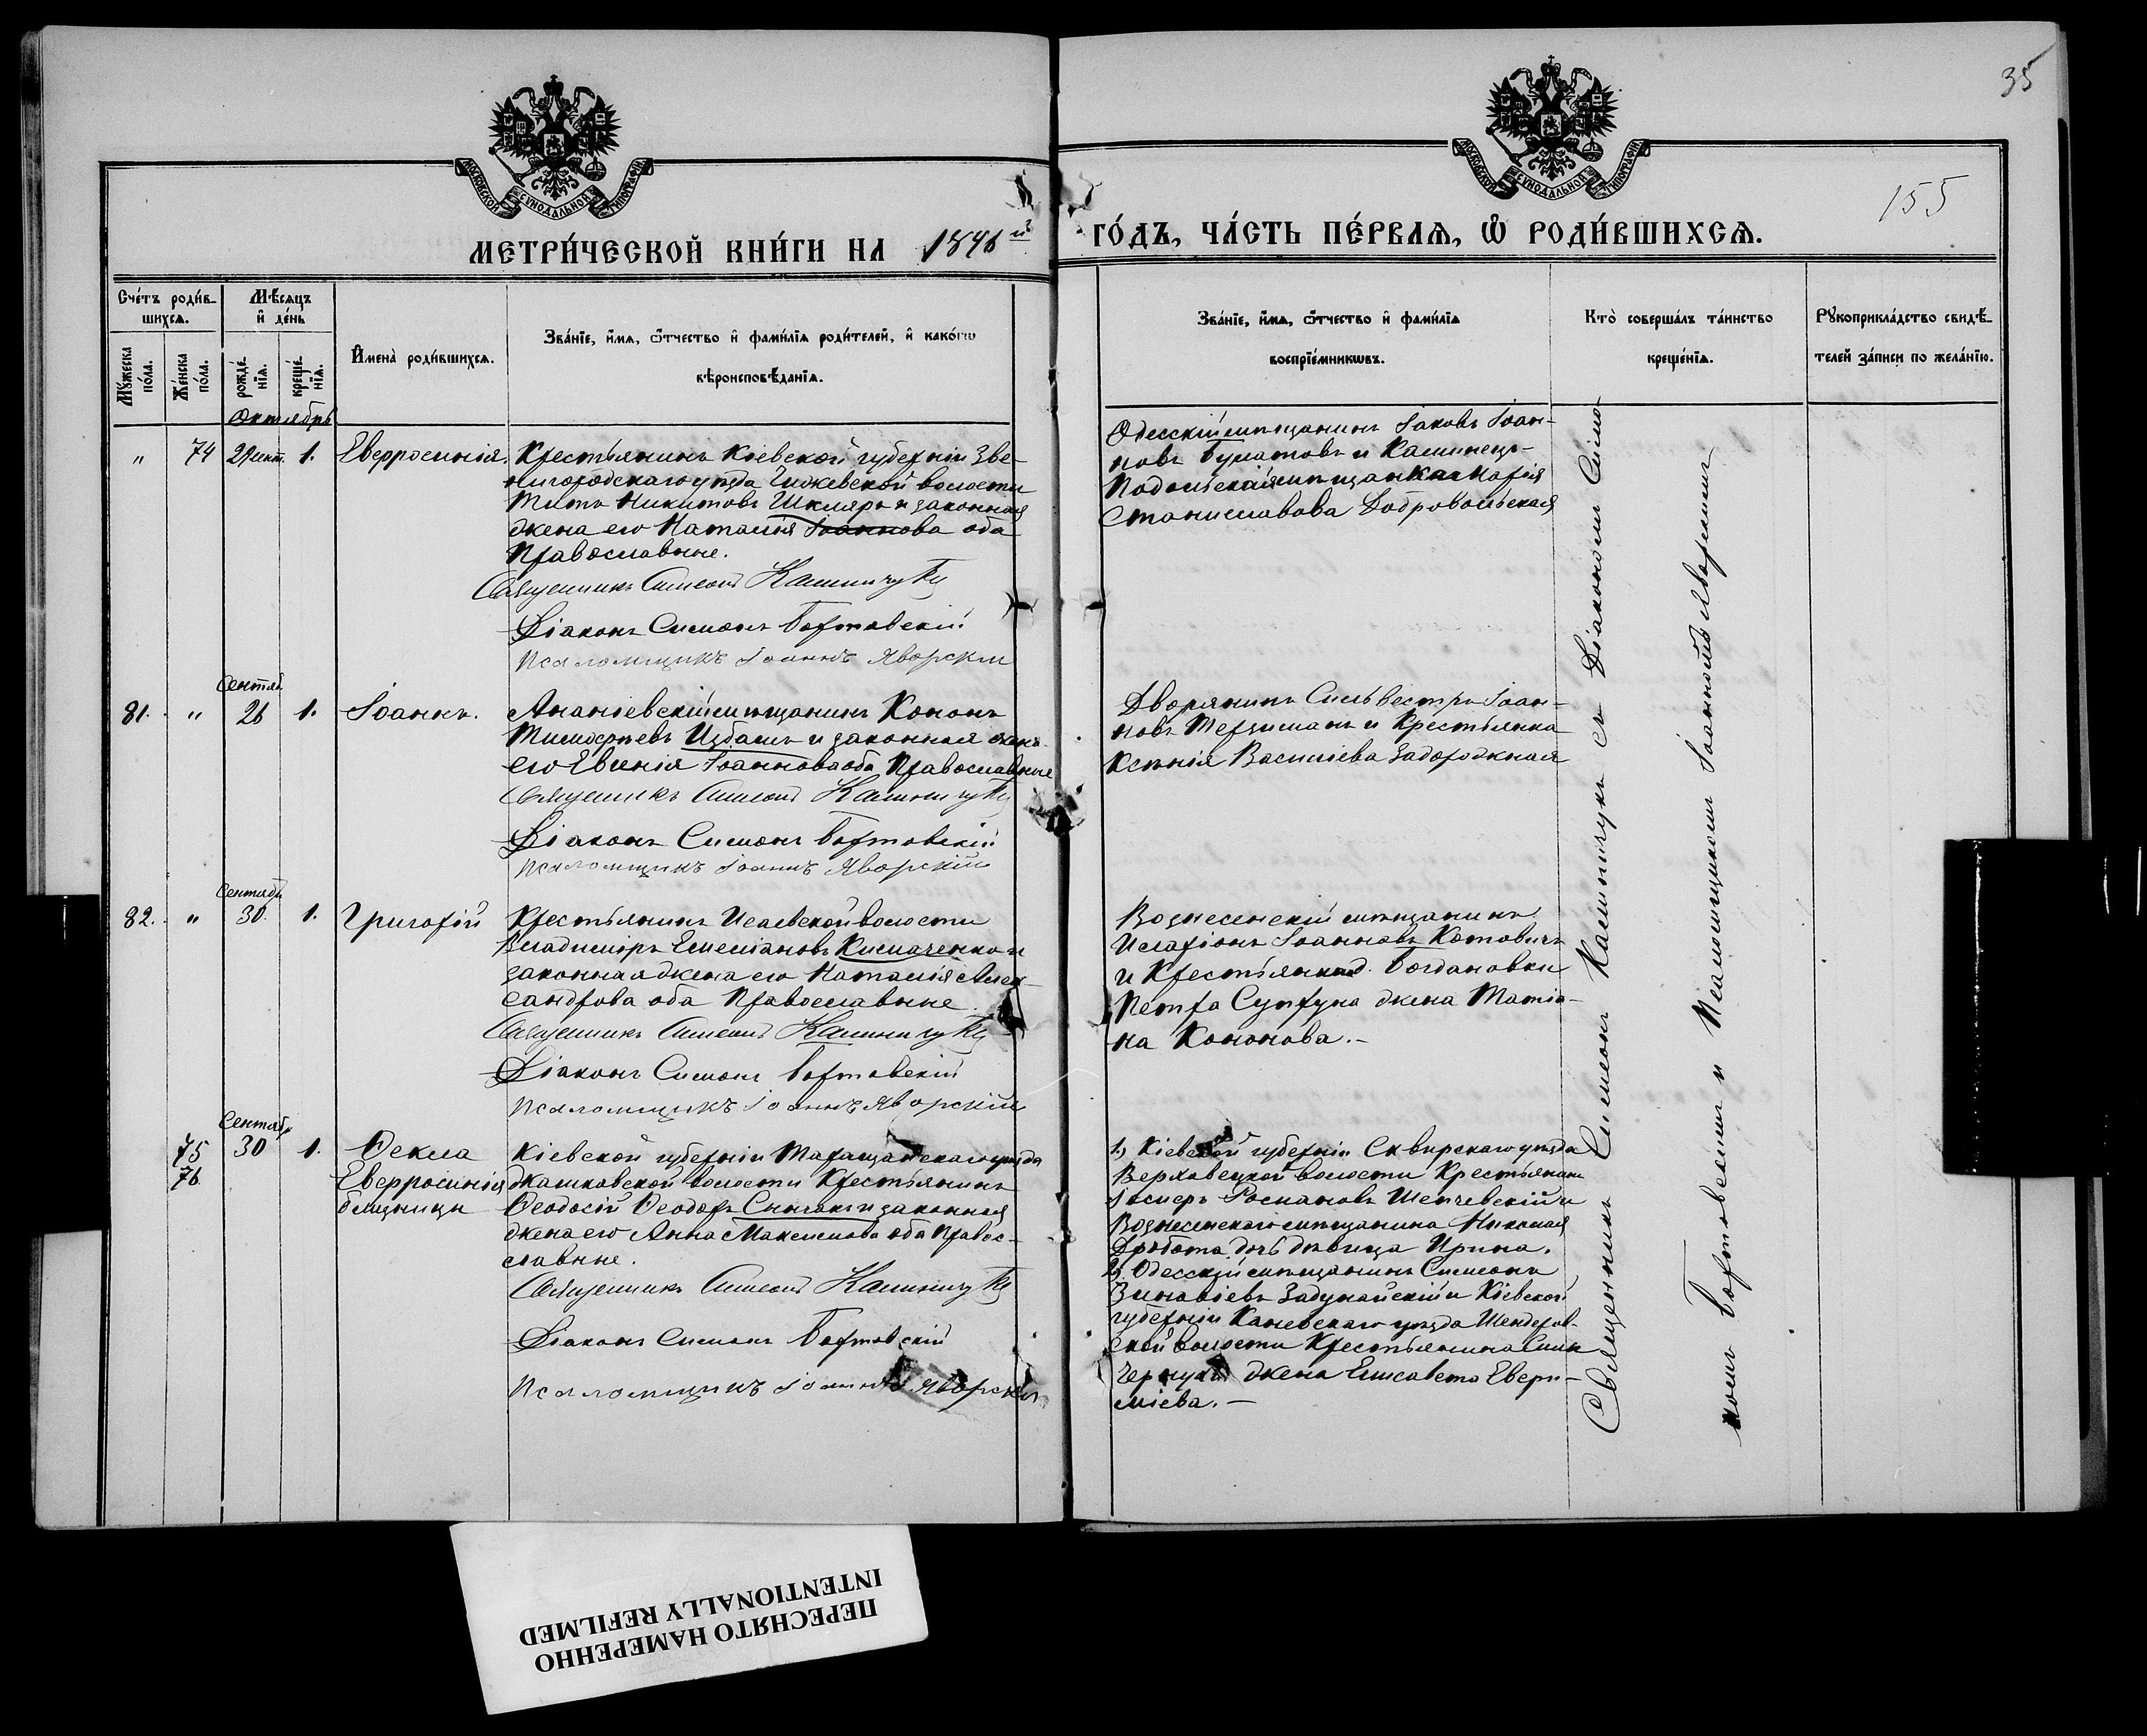 35
155
МОСКОВСКОЙ СѴНОДАЛЬНОЙ ТИПОГРАФІИ
МОСКОВСКОЙ СѴНОДАЛЬНОЙ ТИПОГРАФІИ
МЕТРИ́ЧЕСКОЙ КНИ́ГИ НА 1896й
ГО́ДЪ, ЧА́СТЬ ПЕ́РВАѦ, Ѡ РОДИ́ВШИХСѦ.
Сче́тъ роди́в-
шихсѧ.
Мꙋ́жеска по́ла.
Же́нска по́ла.
Мѣ́сѧцъ и҆ де́нь
рожде́нїѧ.
креще́нїѧ.
И҆мена̀ роди́вшихсѧ.
Зва́нїе, и҆́мѧ, ѻ҆́тчество и҆ фами́лїѧ роди́телей, и҆ како́гѡ
вѣроисповѣ́данїѧ.
Зва́нїе, и҆́мѧ, ѻ҆́тчество и҆ фами́лїѧ
воспрїе́мникѡвъ.
Кто̀ соверша́лъ та́инство
креще́нїѧ.
Рꙋкоприкла́дство свидѣ́-
телей за́писи по жела́нїю.
Октябрь
" 74 29 сент. 1. Евфросинія.
Крестьянинъ Кіевской губерніи Зве-
нигородскаго уѣзда Чижевской волости
Титъ Никитовъ Шкляръ и законная
жена его Наталія Іоаннова оба
Православные.
Священникъ Симеонъ Калинчукъ
Діаконъ Симонъ Бортовскій
Псаломщикъ Іоаннъ Яворскій
Одесскій мѣщанинъ Іаковъ Іоан-
новъ Булатовъ и Каменецъ-
Подольская мѣщанка Марія
Станиславова Добровольская
Сентяб.
81. " 26 1. Іоаннъ.
Ананіевскій мѣщанинъ Кононъ
Тимоѳеевъ Избашъ и законная жена
его Евгенія Іоаннова оба Православные
Священникъ Симеонъ Калинчукъ
Діаконъ Симонъ Бортовскій
Псаломщикъ Іоаннъ Яворскій
Дворянинъ Сильвестръ Іоан-
новъ Терзиманъ и Крестьянка
Ксенія Василіева Задорожная
Сентябр
82. " 30. 1. Григорій
Крестьянинъ Исаевской волости
Владиміръ Емеліановъ Кислаченко и
законная жена его Наталія Алек-
сандрова оба Православные
Священникъ Симеонъ Калинчукъ
Діаконъ Симонъ Бортовскій
Псаломщикъ Іоаннъ Яворскій
Вознесенскій мѣщанинъ
Иларіонъ Іоанновъ Котовичъ
и Крестьянина д. Богдановки
Петра Супруна жена Татіа-
на Кононова.-
Сентябр
75 30 1. Ѳекла
76 Евфросинія
близницы
Кіевской губерніи Таращанскаго уѣзда
Жашковской волости Крестьянинъ
Ѳеодосій Ѳеодоръ Синчакъ и законная
жена его Анна Максимова оба Правос-
лавные.
Священникъ Симеонъ Калинчукъ
Діаконъ Симонъ Бортовскій
Псаломщикъ Іоаннъ Яворскій
1, Кіевской губерніи Сквирскаго уѣзда
Верховецкой волости Крестьянинъ
Іосифъ Романовъ Шепчевскій и
Вознесенскаго мѣщанина Николая
Дробота дочь дѣвица Ирина.
2, Одесскій мѣщанинъ Симеонъ
Зиновіевъ Задунайскій и Кіевской
губерніи Каневскаго уѣзда Шендеров-
ской волости Крестьянина
жена Елисавета Ефри-
міева.-
Священникъ Симеонъ Калинчукъ съ Діакономъ Симо-
номъ Бортовскимъ и Псаломщикомъ Іоанномъ Яворскимъ
ПЕРЕСНЯТО НАМЕРЕННО
INTENTIONALLY REFILMED